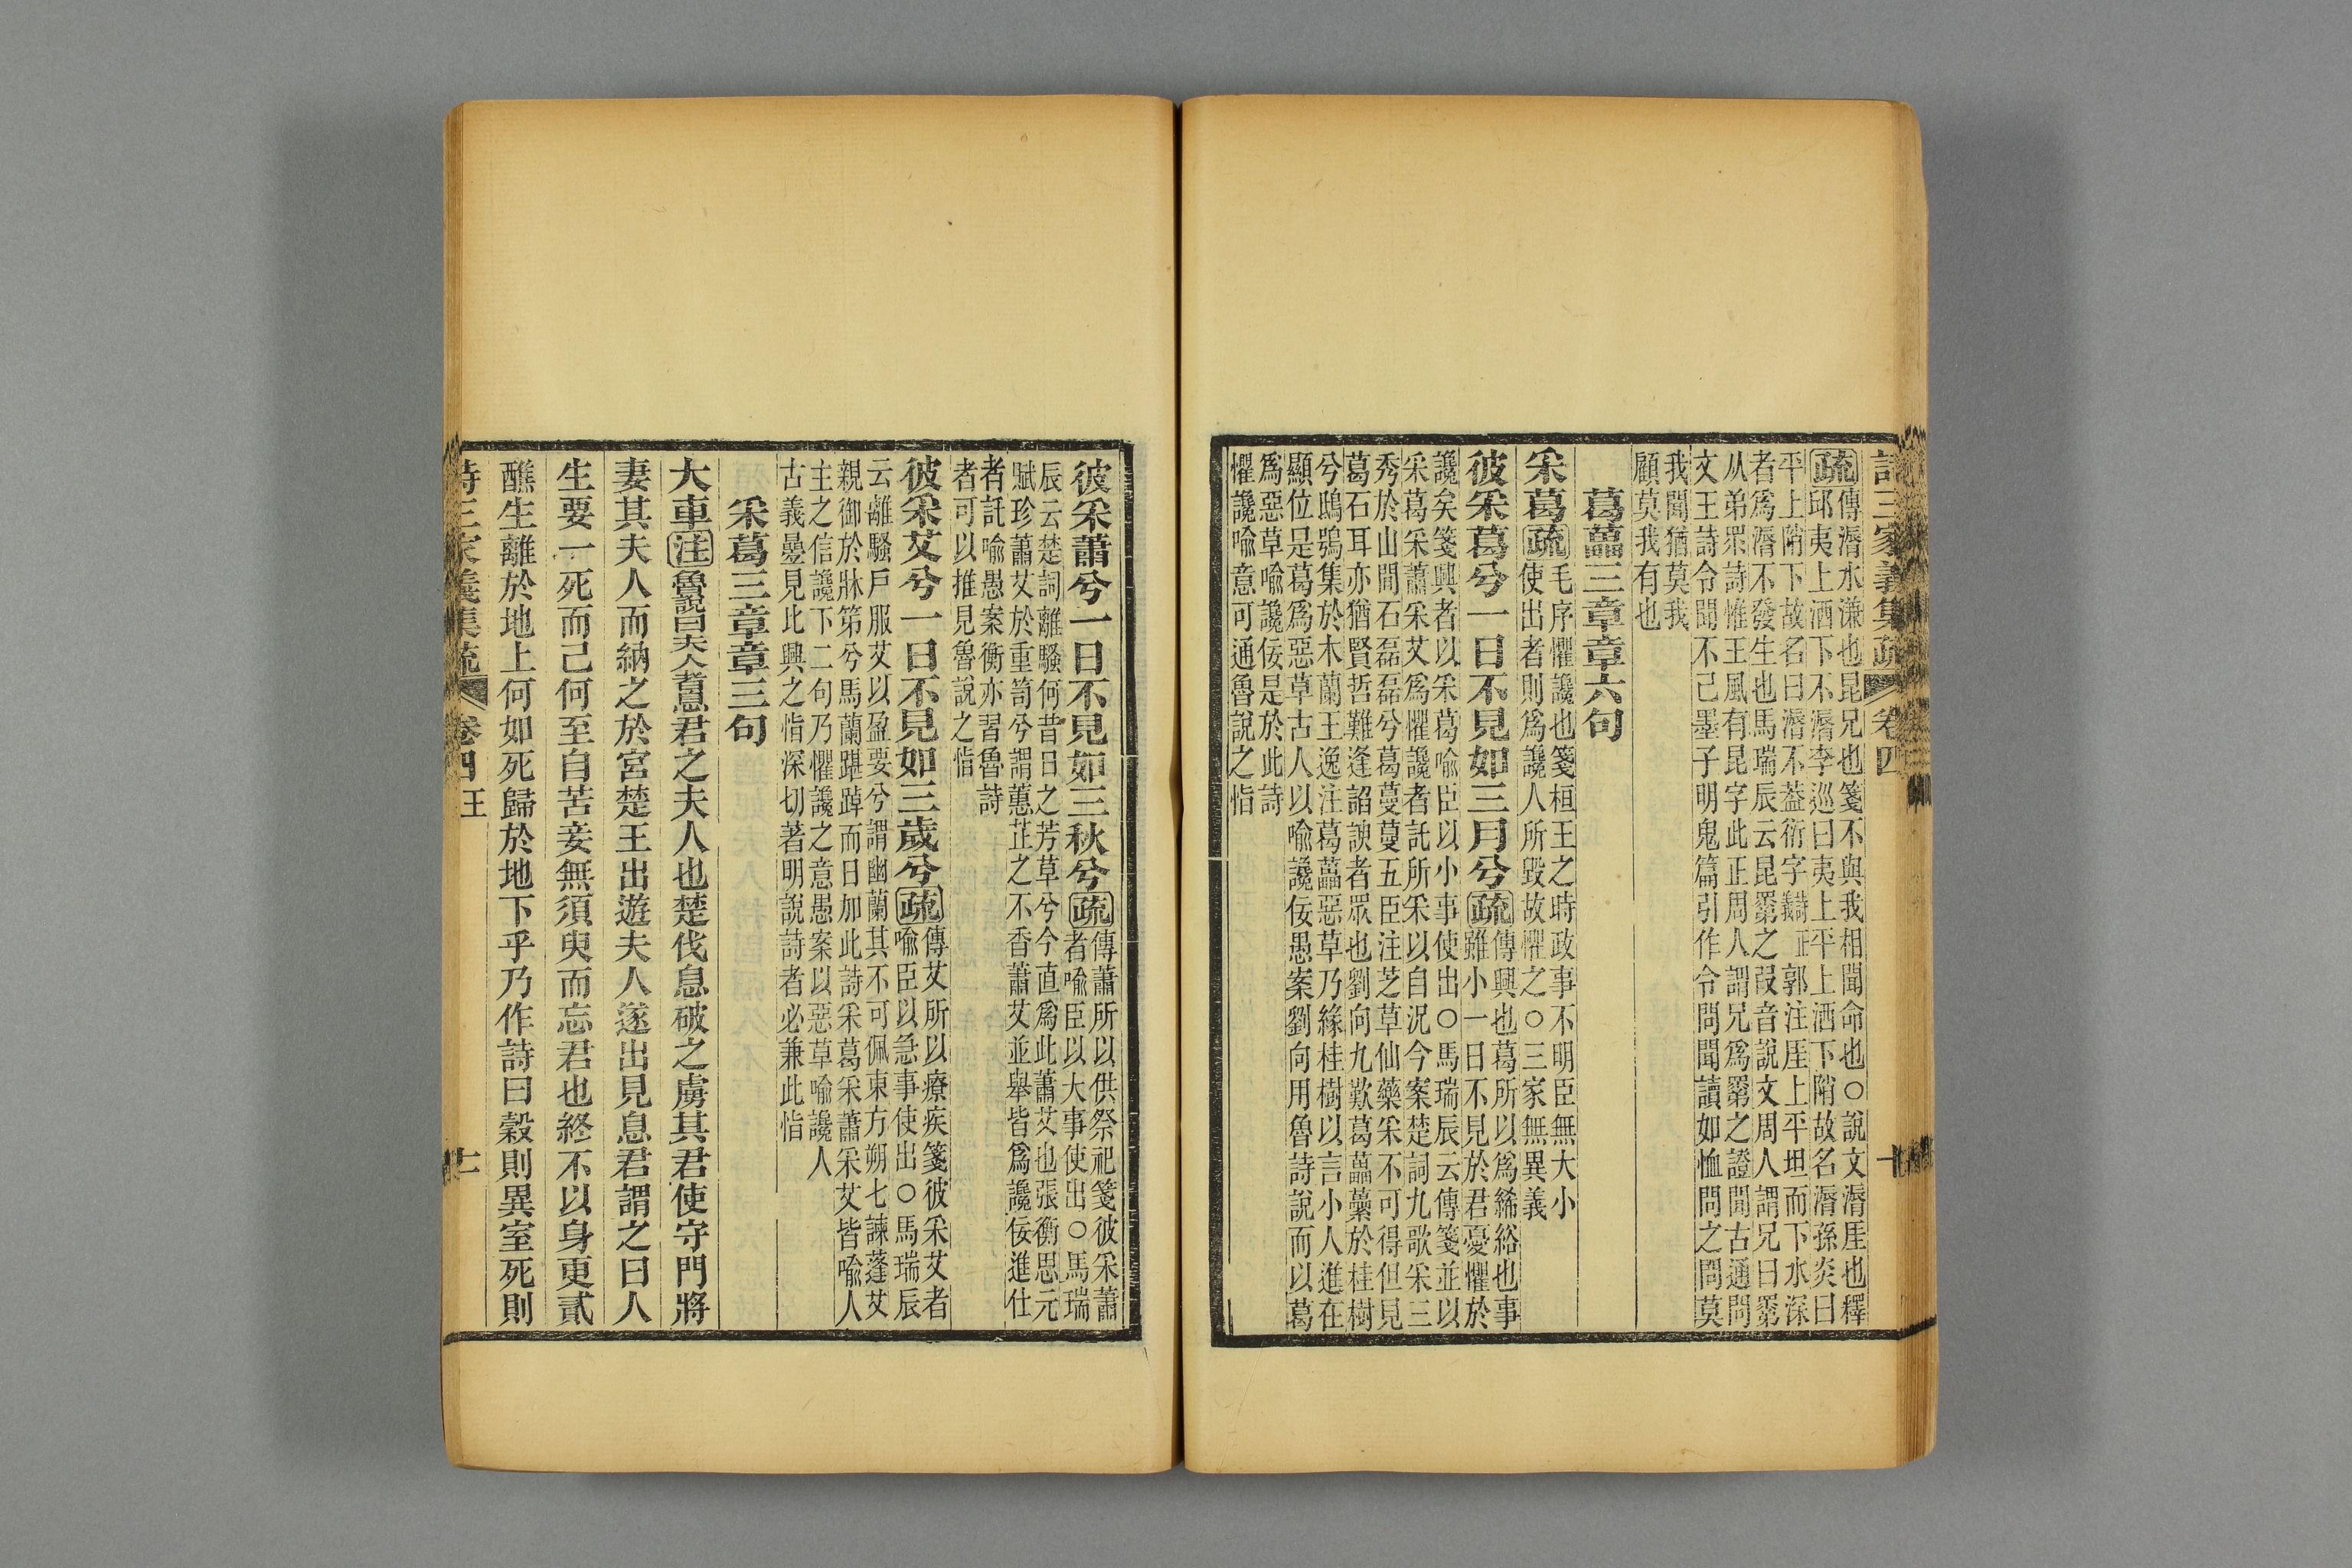 詩三家義集疏 卷四 十
疏傳漘水溓也昆兄也箋不與我相聞命也○說文漘厓也釋
邱夷上洒下不漘李巡曰夷上平上洒下陗故名漘孫炎曰
平上陗下故名曰漘不蓋衍字詩義正郭注厓上平坦而下水深
者爲漘不發生也馬瑞辰云昆䍜之叚音說文周人謂兄曰䍜
从弟眔詩惟王風有昆字此正周人謂兄爲䍜之證聞古通問
文王詩令聞不已墨子明鬼篇引作令問聞讀如恤問之問莫
我聞猶莫我
顧莫我有也
葛藟三章章六句
采葛疏毛序懼讒也箋桓王之時政事不明臣無大小
使出者則爲讒人所毀故懼之○三家無異義
彼采葛兮一日不見如三月兮疏傳興也葛所以爲絺綌也事
雖小一日不見於君憂懼於
讒矣箋興者以采葛喻臣以小事使出○馬瑞辰云傳箋並以
采葛采蕭采艾爲懼讒者託所采以自況今案楚詞九歌采三
秀於山閒石磊磊兮葛蔓蔓五臣注芝草仙藥采不可得但見
葛石耳亦猶賢哲難逢諂諛者眾也劉向九歎葛藟虆於桂樹
兮鴟鴞集於木蘭王逸注葛藟惡草乃緣桂樹以言小人進在
顯位是葛爲惡草古人以喻讒佞愚案劉向用魯詩說而以葛
爲惡草喻讒佞是於此詩
懼讒喻意可通魯說之恉
彼采蕭兮一日不見如三秋兮疏傳蕭所以供祭祀箋彼采蕭
者喻臣以大事使出○馬瑞
辰云楚詞離騷何昔日之芳草兮今直爲此蕭艾也張衡思元
賦珍蕭艾於重笥兮謂蕙芷之不香蕭艾並舉皆爲讒佞進仕
者託喻愚案衡亦習魯詩
者可以推見魯說之恉
彼采艾兮一日不見如三歲兮疏傳艾所以療疾箋彼采艾者
喻臣以急事使出○馬瑞辰
云離騷戶服艾以盈要兮謂幽蘭其不可佩東方朔七諫蓬艾
親御於牀笫兮馬蘭踸踔而日加此詩采葛采蕭采艾皆喻人
主之信讒下二句乃懼讒之意愚案以惡草喻讒人
古義曼見此興之恉深切著明說詩者必兼此恉
采葛三章章三句
大車注魯說曰夫人者息君之夫人也楚伐息破之虜其君使守門將
妻其夫人而納之於宮楚王出遊夫人遂出見息君謂之曰人
生要一死而已何至自苦妾無須臾而忘君也終不以身更貳
醮生離於地上何如死歸於地下乎乃作詩曰穀則異室死則
詩三家義集疏 卷四 王